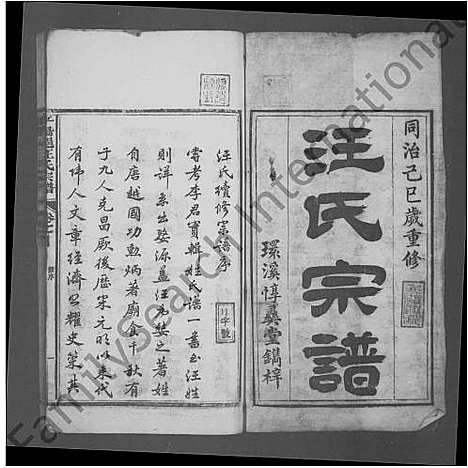 同治己巳歲重修
汪氏宗譜
環溪惇彝堂鐫梓
汪氏續修宗譜序
嘗考李君寶輯姓氏譜一書至汪姓
則詳系出婺源蓋汪為婺之著姓
自唐越國功勳炳著廟食千秋有
子九人克昌厥後歷宋元明以来代
有偉人文章經濟照耀史策其
FamilySearch International